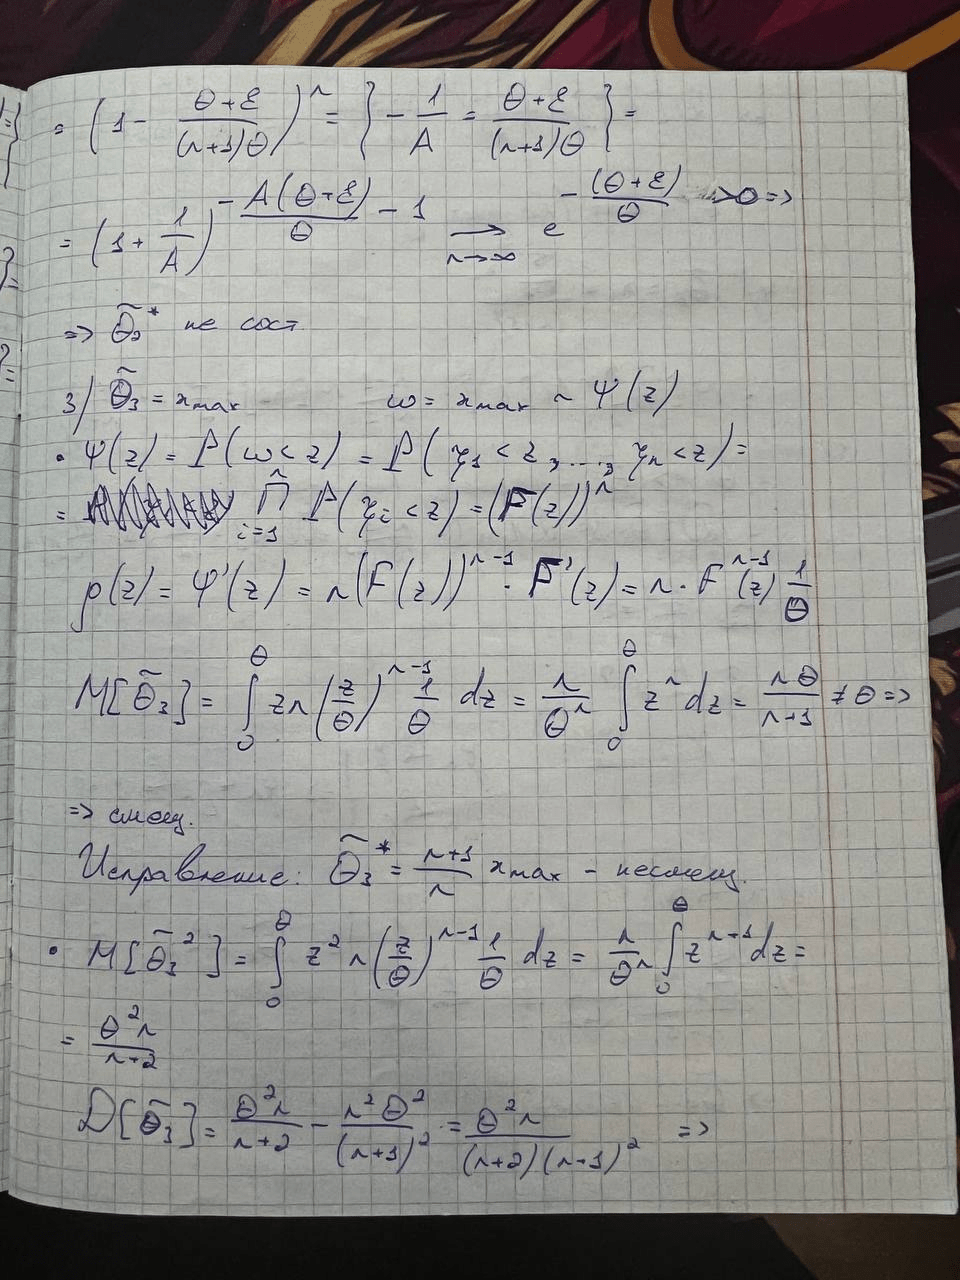 = (1 - (θ+ε)/((n+1)θ))^n = { -1/A = (θ+ε)/((n+1)θ) } =
= (1 + 1/A)^(-A(θ+ε)/θ - 1) ⟶_(n→∞) e^(-(θ+ε)/θ) >0 =>
=> θ̃₂* не сост
3) θ̃₃ = x_max ω = x_max ~ Ψ(z)
• Ψ(z) = P(ω < z) = P(ξ₁ < z, ..., ξₙ < z) =
= ∏_(i=1)^n P(ξᵢ < z) = (F(z))^n
p(z) = Ψ'(z) = n(F(z))^(n-1) · F'(z) = n · F^(n-1)(z) 1/θ
M[θ̃₃] = ∫_0^θ z n (z/θ)^(n-1) 1/θ dz = n/θ^n ∫_0^θ z^n dz = nθ/(n+1) ≠ θ =>
=> смещ.
Исправление: θ̃₃* = (n+1)/n x_max - несмещ.
• M[θ̃₃²] = ∫_0^θ z² n (z/θ)^(n-1) 1/θ dz = n/θ^n ∫_0^θ z^(n+1) dz =
= θ²n/(n+2)
D[θ̃₃] = θ²n/(n+2) - n²θ²/(n+1)² = θ²n/((n+2)(n+1)²) =>